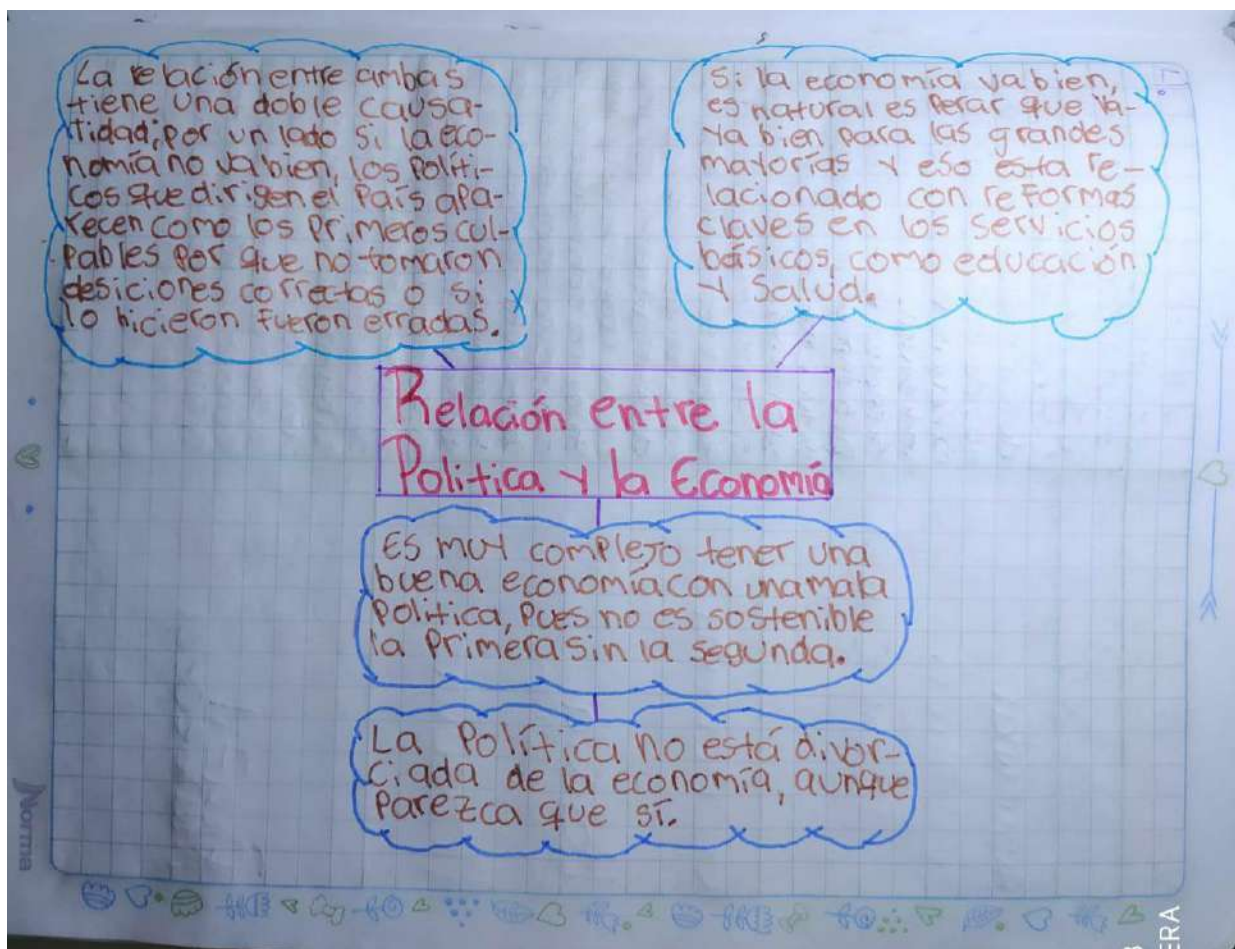 La relación entre ambas
tiene una doble causa-
tidad; por un lado si la eco-
nomía no va bien, los políti-
cos que dirigen el país apa-
recen como los primeros cul-
pables por que no tomaron
desiciones correctas o si
lo hicieron fueron erradas.
Si la economía va bien,
es natural esperar que va-
ya bien para las grandes
mayorías y eso esta re-
lacionado con reformas
claves en los servicios
básicos, como educación
y salud.
Relación entre la
Politica y la Economía
Es muy complejo tener una
buena economía con una mala
politica, pues no es sostenible
la primera sin la segunda.
La Política no está divor-
ciada de la economía, aunque
parezca que sí.
Norma
ERA